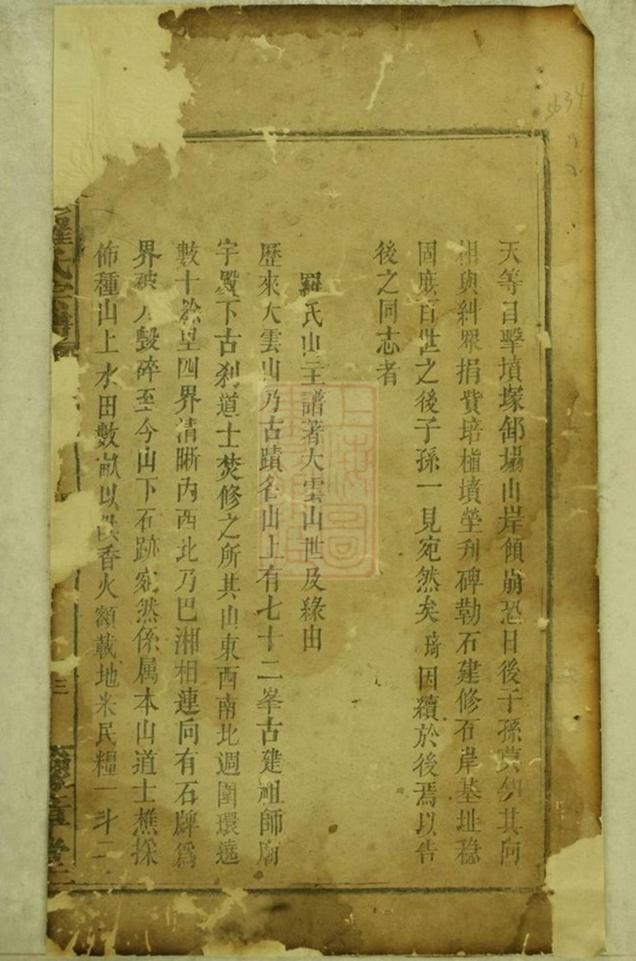 天等目擊墳塚卸塌山岸傾崩恐日後子孫莫知其向
相與糾眾捐貲培植墳塋刋碑勒石建修石岸基址穩
固庶百世之後子孫一見宛然矣琦因續於後焉以告
後之同志者
羅氏山主譜著大雲山世及綠由
歷來大雲山乃古蹟名山上有七十二峯古建祖師廟
宇殿下古刹道士焚修之所其山東西南北週圍環遶
數十餘里四界清晰內西北乃巴湘相連向有石牌為
界被人毀碎至今山下石跡宛然係属本山道士樵採
佈種山上水田數畝以供香火額載地米民糧一斗二
羅氏宗譜
三
5634